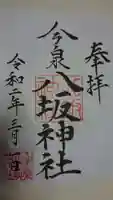 奉拝
今泉
八坂神社
令和二年三月一日